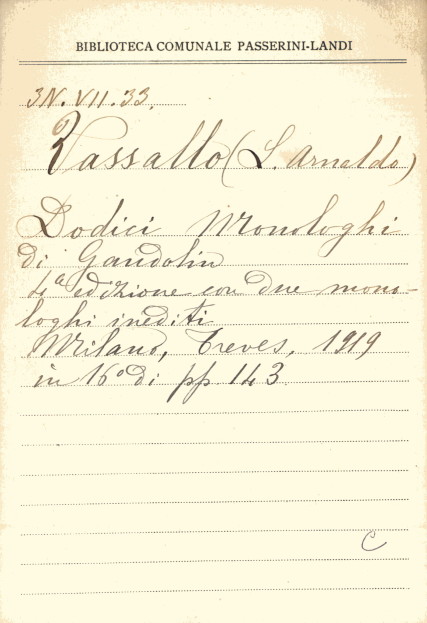 BIBLIOTECA COMUNALE PASSERINI-LANDI
3N.VII.33.
Vassallo (L. Arnaldo)
Dodici Monologhi
di Gandolin
4ª edizione con due mono-
loghi inediti
Milano, Treves, 1919
in 16º di pp 143
C